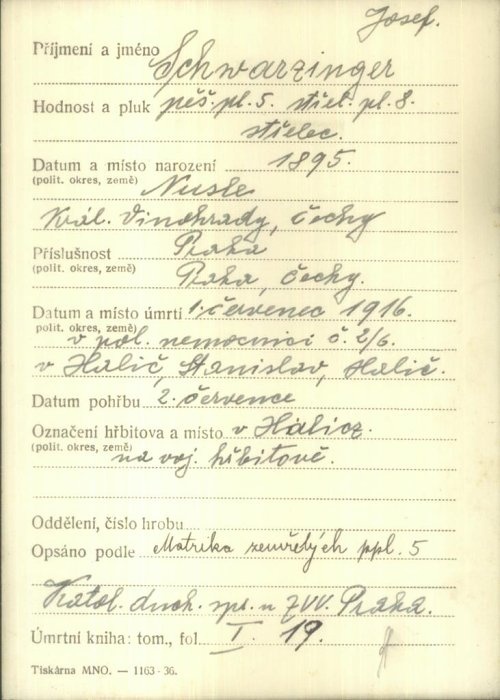 Josef.
Příjmení a jméno Schwarzinger
Hodnost a pluk pěš. pl. 5. střel. pl. 8.
střelec.
Datum a místo narození 1895.
(polit. okres, země) Nusle
Král. Vinohrady, Čechy
Příslušnost Praha
(polit. okres, země) Praha, Čechy.
Datum a místo úmrtí 1. červenec 1916.
polit. okres, země)
v pol. nemocnici č. 2/6.
v Halič, Stanislav, Halič.
Datum pohřbu 2. července
Označení hřbitova a místo v Halicz.
(polit. okres, země) na voj. hřbitově.
Oddělení, číslo hrobu
Opsáno podle Matrika zemřelých ppl. 5
Katol. duch. spr. u ZVV. Praha.
Úmrtní kniha: tom., fol. I. 19.
Tiskárna MNO. — 1163-36.